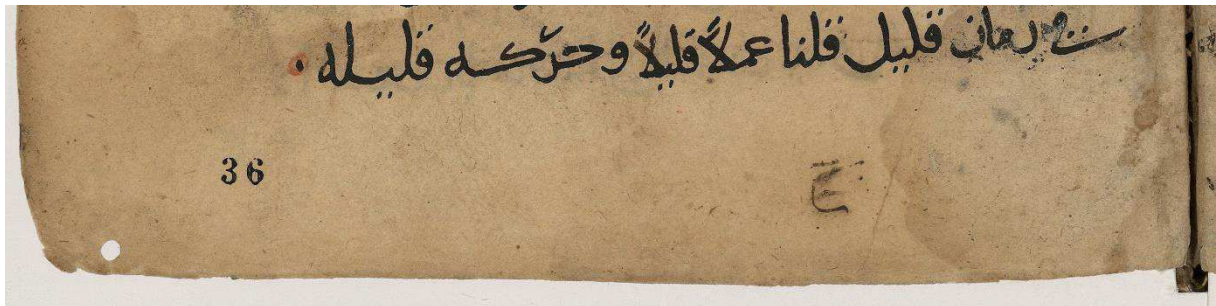 في زمان قليل قلنا عملاً قليلاً وحرّكه قليله
36